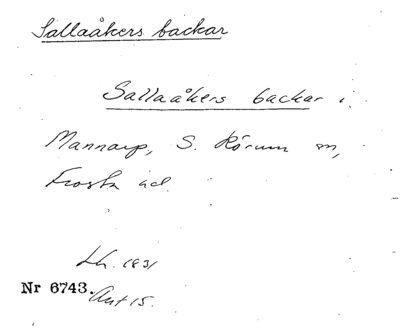 Sallaåkers backar
Sallaåkers backar i
Mannarp, S. Rörum sn,
Frosta hd.
Lh. 1831
Nr 6743. Akt 15.